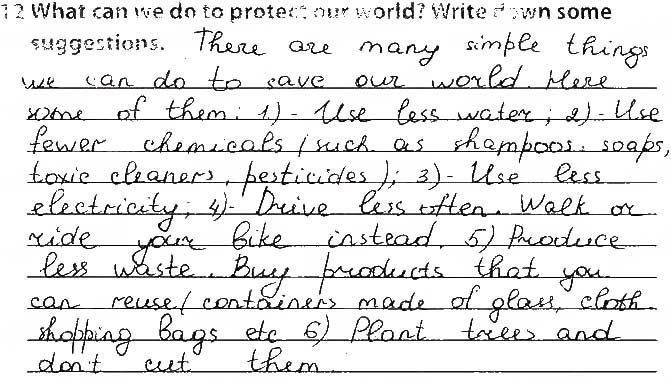 12 What can we do to protect our world? Write down some
suggestions. There are many simple things
we can do to save our world. Here
some of them: 1) - Use less water; 2) - Use
fewer chemicals (such as shampoos, soaps,
toxic cleaners, pesticides); 3) - Use less
electricity; 4) - Drive less often. Walk or
ride your bike instead. 5) Produce
less waste. Buy products that you
can reuse (containers made of glass, cloth
shopping bags etc 6) Plant trees and
don't cut them